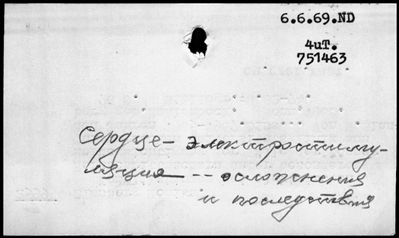 6.6.69.ND
4иТ.
751463
Сердце - электростиму-
ляция -- осложнения
и последствия